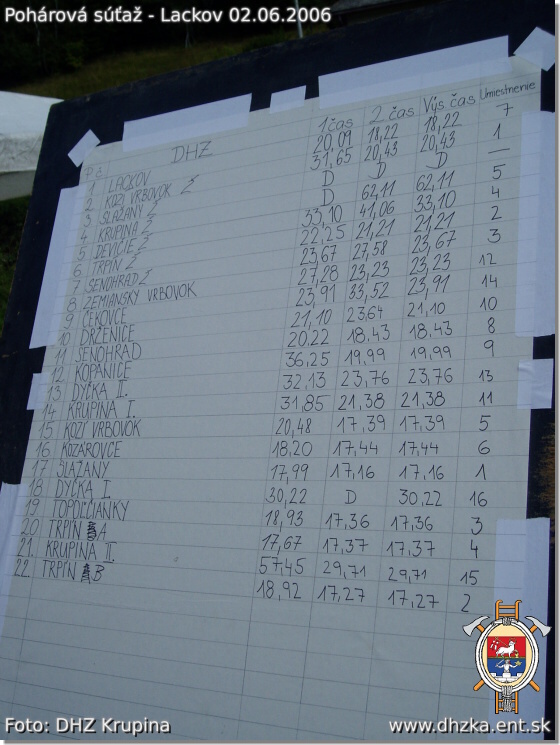 Pohárová súťaž - Lackov 02.06.2006
P.č. DHZ 1 čas 2 čas Výs. čas Umiestnenie
1 LACKOV 20,09 18,22 18,22 7
2 KOZI VRBOVOK Ž 31,65 20,43 20,43 1
3 SLAŽANY Ž D D D —
4 KRUPINA Ž D 62,11 62,11 5
5 DEVIČIE Ž 33,10 41,06 33,10 4
6 TRPÍN Ž 22,25 21,21 21,21 2
7 SENOHRAD Ž 23,67 27,58 23,67 3
8 ZEMIANSKY VRBOVOK 27,28 23,23 23,23 12
9 ČEKOVCE 23,91 33,52 23,91 14
10 DRŽENICE 21,10 23,64 21,10 10
11 SENOHRAD 20,22 18,43 18,43 8
12 KOPANICE 36,25 19,99 19,99 9
13 DYČKA I. 32,13 23,76 23,76 13
14 KRUPINA I. 31,85 21,38 21,38 11
15 KOZÍ VRBOVOK 20,48 17,39 17,39 5
16 KOZAROVCE 18,20 17,44 17,44 6
17 SLAŽANY 17,99 17,16 17,16 1
18 DYČKA I. 30,22 D 30,22 16
19 TOPOĽČIANKY 18,93 17,36 17,36 3
20 TRPÍN A 17,67 17,37 17,37 4
21. KRUPINA II. 57,45 29,71 29,71 15
22. TRPÍN B 18,92 17,27 17,27 2
Foto: DHZ Krupina www.dhzka.ent.sk